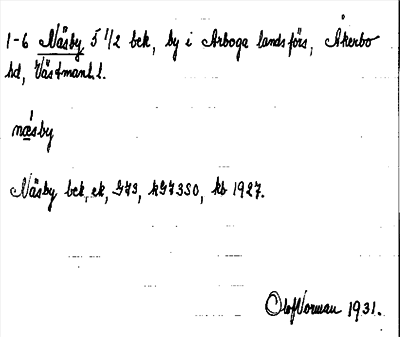 1-6 Näsby 5 1/2 bek, by i Arboga landsförs, Åkerbo
hd, Västmanl.l.
næsby
Näsby bek, ek, G73, kG73SO, kb 1927.
Olof Norman 1931.